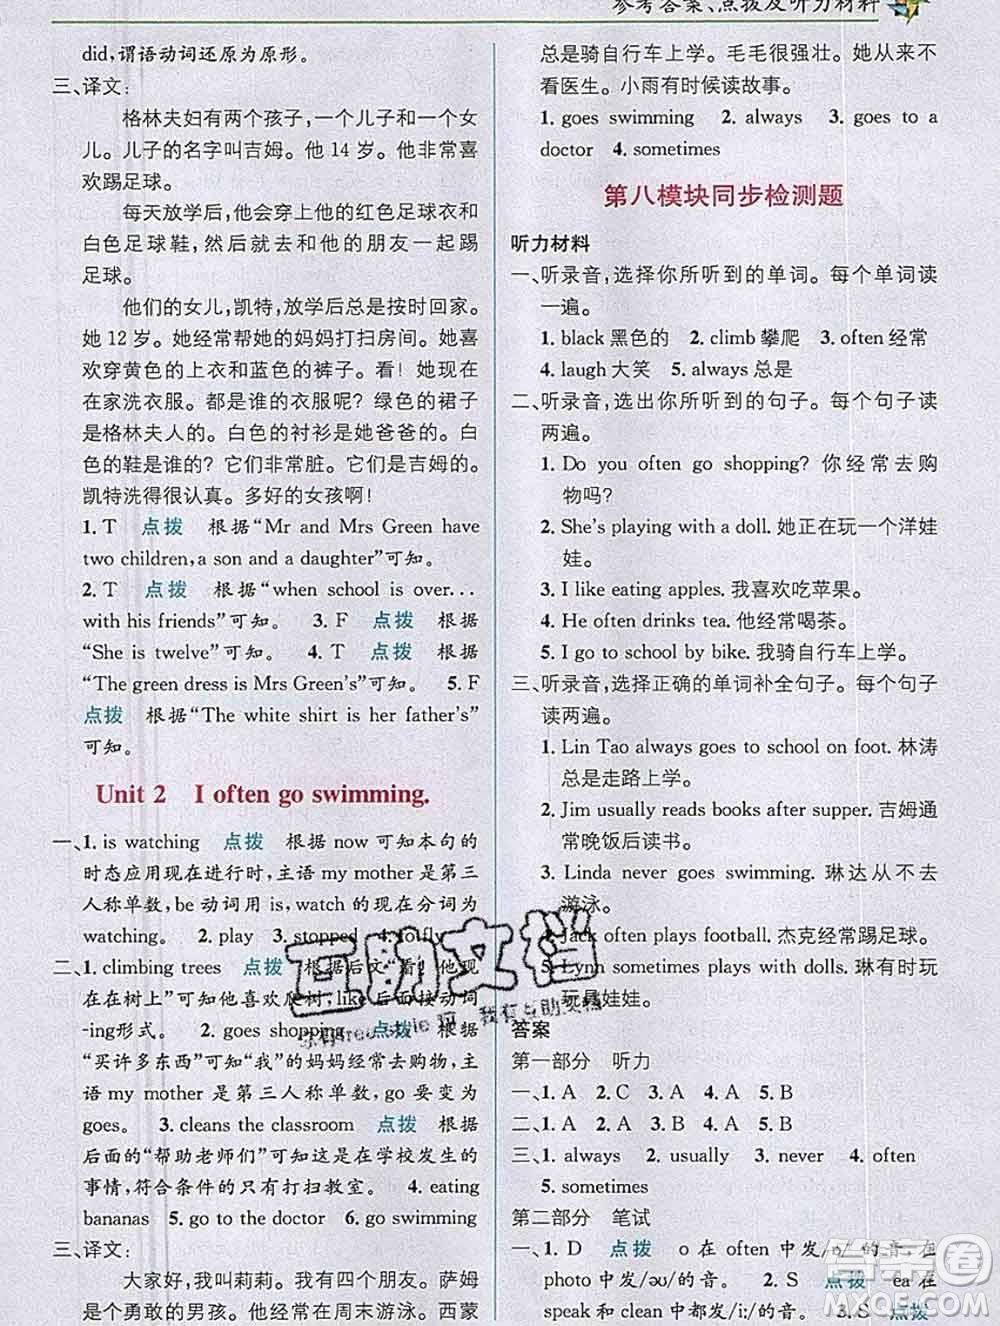 参考答案、点拨及听力材料
did,谓语动词还原为原形。
三、译文:
格林夫妇有两个孩子,一个儿子和一个女
儿。儿子的名字叫吉姆。他 14 岁。他非常喜
欢踢足球。
每天放学后,他会穿上他的红色足球衣和
白色足球鞋,在公园里和他的朋友一起踢
足球。
他们的女儿,凯特,放学后总是按时回家。
她 12 岁。她经常帮她的妈妈打扫房间。她喜
欢穿黄色的上衣和蓝色的裤子。看!她现在正
在家洗衣服。都是谁的衣服呢?绿色的裙子
是格林夫人的。白色的衬衫是她爸爸的。黑
色的鞋是谁的?它们非常脏。它们是吉姆的。
凯特洗得很认真。多好的女孩啊!
1. T 点拨 根据“Mr and Mrs Green have
two children, a son and a daughter”可知。
2. T 点拨 根据“when school is over...
with his friends”可知。 3. F 点拨 根据
“She is twelve”可知。 4. T 点拨 根据
“The green dress is Mrs Green's”可知。 5. F
点拨 根据“The white shirt is her father's”
可知。
Unit 2 I often go swimming.
一、1. is watching 点拨 根据 now 可知本句的
时态应用现在进行时,主语 my mother 是第三
人称单数,be 动词用 is,watch 的现在分词为
watching。 2. play 3. stopped 4. fly
二、1. climbing trees 点拨 根据后文“看!他现
在正在树上”可知他喜欢爬树,like 后面接动词
-ing形式。 2. goes shopping 点拨 根据
“买许多东西”可知“我”的妈妈经常去购物,主
语 my mother 是第三人称单数,go 要变为
goes。 3. cleans the classroom 点拨 根据
后面的“帮助老师们”可知这是在学校发生的
事情,符合条件的只有打扫教室。 4. eating
bananas 5. go to the doctor 6. go swimming
三、译文:
大家好,我叫莉莉。我有四个朋友。萨姆
是个勇敢的男孩。他经常在周末游泳。西蒙
总是骑自行车上学。毛毛很强壮。她从来不
看医生。小雨有时候读故事。
1. goes swimming 2. always 3. goes to a
doctor 4. sometimes
第八模块同步检测题
听力材料
一、听录音,选择你所听到的单词。每个单词读
一遍。
1. black 黑色的 2. climb 攀爬 3. often 经常
4. laugh 大笑 5. always 总是
二、听录音,选出你所听到的句子。每个句子读
两遍。
1. Do you often go shopping? 你经常去购
物吗?
2. She's playing with a doll. 她正在玩一个洋娃
娃。
3. I like eating apples. 我喜欢吃苹果。
4. He often drinks tea. 他经常喝茶。
5. I go to school by bike. 我骑自行车上学。
三、听录音,选择正确的单词补全句子。每个句子
读两遍。
1. Lin Tao always goes to school on foot. 林涛
总是走路上学。
2. Jim usually reads books after supper. 吉姆通
常晚饭后读书。
3. Linda never goes swimming. 琳达从不去
游泳。
4. Jack often plays football. 杰克经常踢足球。
5. Lynn sometimes plays with dolls. 琳有时玩
玩具娃娃。
答案
第一部分 听力
一、1. A 2. C 3. A 4. A 5. B
二、1. A 2. B 3. B 4. A 5. B
三、1. always 2. usually 3. never 4. often
5. sometimes
第二部分 笔试
一、1. D 点拨 o 在 often 中发/ɒ/的音,在
photo 中发/əʊ/的音。 2. S 点拨 ea 在
speak 和 clean 中都发/iː/的音。 3. S 点拨
互助文档
答案圈
MXQE.COM